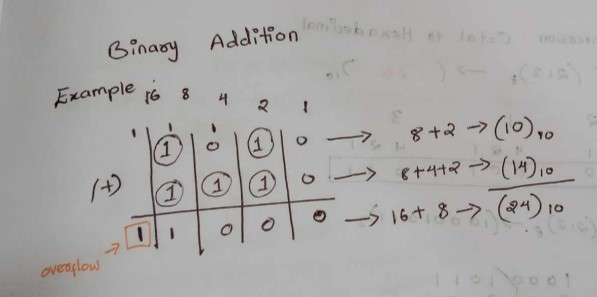 Binary Addition
Example 16 8 4 2 1
1 1 1
1 0 1 0 → 8+2 → (10)10
(+) 1 1 1 0 → 8+4+2 → (14)10
1 1 0 0 0 → 16+8 → (24)10
overflow